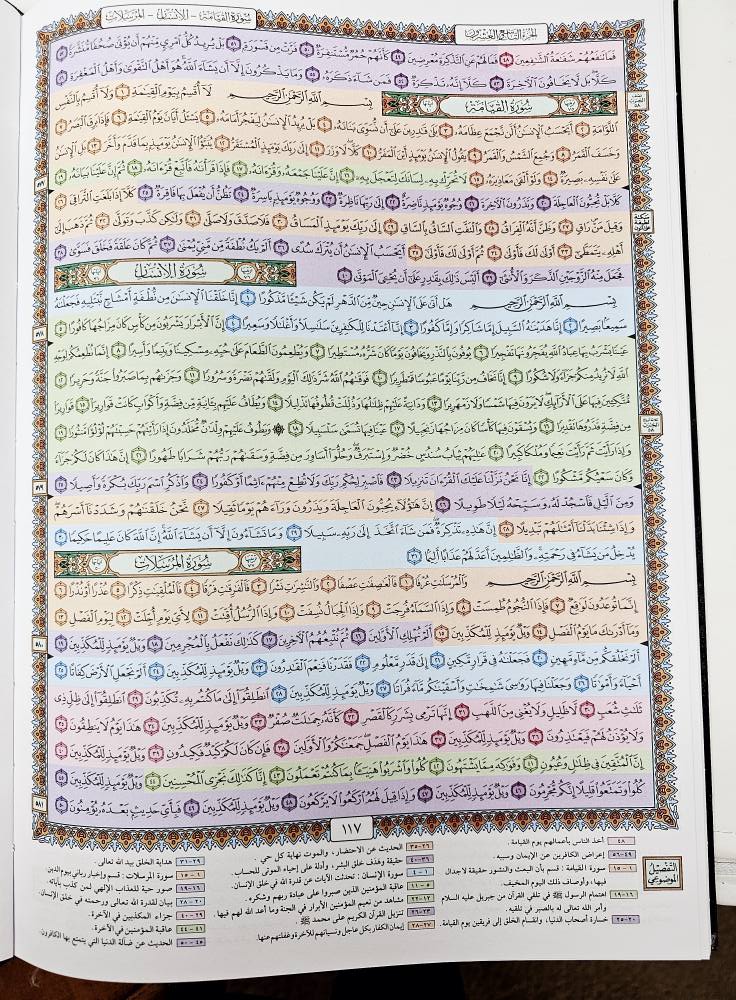 الجزء التاسع والعشرون
سورة القيامة - الإنسان - المرسلات
فما تنفعهم شفاعة الشافعين ٤٨ فما لهم عن التذكرة معرضين ٤٩ كأنهم حمر مستنفرة ٥٠ فرت من قسورة ٥١ بل يريد كل امرئ منهم أن يؤتى صحفا منشرة ٥٢
كلا بل لا يخافون الآخرة ٥٣ كلا إنه تذكرة ٥٤ فمن شاء ذكره ٥٥ وما يذكرون إلا أن يشاء الله هو أهل التقوى وأهل المغفرة ٥٦
سورة القيامة
بسم الله الرحمن الرحيم لا أقسم بيوم القيامة ١ ولا أقسم بالنفس
اللوامة ٢ أيحسب الإنسان ألن نجمع عظامه ٣ بلى قادرين على أن نسوي بنانه ٤ بل يريد الإنسان ليفجر أمامه ٥ يسأل أيان يوم القيامة ٦ فإذا برق البصر ٧
وخسف القمر ٨ وجمع الشمس والقمر ٩ يقول الإنسان يومئذ أين المفر ١٠ كلا لا وزر ١١ إلى ربك يومئذ المستقر ١٢ ينبأ الإنسان يومئذ بما قدم وأخر ١٣ بل الإنسان
على نفسه بصيرة ١٤ ولو ألقى معاذيره ١٥ لا تحرك به لسانك لتعجل به ١٦ إن علينا جمعه وقرآنه ١٧ فإذا قرأناه فاتبع قرآنه ١٨ ثم إن علينا بيانه ١٩
كلا بل تحبون العاجلة ٢٠ وتذرون الآخرة ٢١ وجوه يومئذ ناضرة ٢٢ إلى ربها ناظرة ٢٣ ووجوه يومئذ باسرة ٢٤ تظن أن يفعل بها فاقرة ٢٥ كلا إذا بلغت التراقي ٢٦
وقيل من راق ٢٧ وظن أنه الفراق ٢٨ والتفت الساق بالساق ٢٩ إلى ربك يومئذ المساق ٣٠ فلا صدق ولا صلى ٣١ ولكن كذب وتولى ٣٢ ثم ذهب إلى
أهله يتمطى ٣٣ أولى لك فأولى ٣٤ ثم أولى لك فأولى ٣٥ أيحسب الإنسان أن يترك سدى ٣٦ ألم يك نطفة من مني يمنى ٣٧ ثم كان علقة فخلق فسوى ٣٨
فجعل منه الزوجين الذكر والأنثى ٣٩ أليس ذلك بقادر على أن يحيي الموتى ٤٠
سورة الإنسان
بسم الله الرحمن الرحيم هل أتى على الإنسان حين من الدهر لم يكن شيئا مذكورا ١ إنا خلقنا الإنسان من نطفة أمشاج نبتليه فجعلناه
سميعا بصيرا ٢ إنا هديناه السبيل إما شاكرا وإما كفورا ٣ إنا أعتدنا للكافرين سلاسلا وأغلالا وسعيرا ٤ إن الأبرار يشربون من كأس كان مزاجها كافورا ٥
عينا يشرب بها عباد الله يفجرونها تفجيرا ٦ يوفون بالنذر ويخافون يوما كان شره مستطيرا ٧ ويطعمون الطعام على حبه مسكينا ويتيما وأسيرا ٨ إنما نطعمكم لوجه
الله لا نريد منكم جزاء ولا شكورا ٩ إنا نخاف من ربنا يوما عبوسا قمطريرا ١٠ فوقاهم الله شر ذلك اليوم ولقاهم نضرة وسرورا ١١ وجزاهم بما صبروا جنة وحريرا ١٢
متكئين فيها على الأرائك لا يرون فيها شمسا ولا زمهريرا ١٣ ودانية عليهم ظلالها وذللت قطوفها تذليلا ١٤ ويطاف عليهم بآنية من فضة وأكواب كانت قواريرا ١٥ قواريرا
من فضة قدروها تقديرا ١٦ ويسقون فيها كأسا كان مزاجها زنجبيلا ١٧ عينا فيها تسمى سلسبيلا ١٨ ۞ ويطوف عليهم ولدان مخلدون إذا رأيتهم حسبتهم لؤلؤا منثورا ١٩
وإذا رأيت ثم رأيت نعيما وملكا كبيرا ٢٠ عاليهم ثياب سندس خضر وإستبرق وحلوا أساور من فضة وسقاهم ربهم شرابا طهورا ٢١ إن هذا كان لكم جزاء
وكان سعيكم مشكورا ٢٢ إنا نحن نزلنا عليك القرآن تنزيلا ٢٣ فاصبر لحكم ربك ولا تطع منهم آثما أو كفورا ٢٤ واذكر اسم ربك بكرة وأصيلا ٢٥
ومن الليل فاسجد له وسبحه ليلا طويلا ٢٦ إن هؤلاء يحبون العاجلة ويذرون وراءهم يوما ثقيلا ٢٧ نحن خلقناهم وشددنا أسرهم
وإذا شئنا بدلنا أمثالهم تبديلا ٢٨ إن هذه تذكرة فمن شاء اتخذ إلى ربه سبيلا ٢٩ وما تشاءون إلا أن يشاء الله إن الله كان عليما حكيما ٣٠
يدخل من يشاء في رحمته والظالمين أعد لهم عذابا أليما ٣١
سورة المرسلات
بسم الله الرحمن الرحيم والمرسلات عرفا ١ فالعاصفات عصفا ٢ والناشرات نشرا ٣ فالفارقات فرقا ٤ فالملقيات ذكرا ٥ عذرا أو نذرا ٦
إنما توعدون لواقع ٧ فإذا النجوم طمست ٨ وإذا السماء فرجت ٩ وإذا الجبال نسفت ١٠ وإذا الرسل أقتت ١١ لأي يوم أجلت ١٢ ليوم الفصل ١٣
وما أدراك ما يوم الفصل ١٤ ويل يومئذ للمكذبين ١٥ ألم نهلك الأولين ١٦ ثم نتبعهم الآخرين ١٧ كذلك نفعل بالمجرمين ١٨ ويل يومئذ للمكذبين ١٩
ألم نخلقكم من ماء مهين ٢٠ فجعلناه في قرار مكين ٢١ إلى قدر معلوم ٢٢ فقدرنا فنعم القادرون ٢٣ ويل يومئذ للمكذبين ٢٤ ألم نجعل الأرض كفاتا ٢٥
أحياء وأمواتا ٢٦ وجعلنا فيها رواسي شامخات وأسقيناكم ماء فراتا ٢٧ ويل يومئذ للمكذبين ٢٨ انطلقوا إلى ما كنتم به تكذبون ٢٩ انطلقوا إلى ظل ذي
ثلاث شعب ٣٠ لا ظليل ولا يغني من اللهب ٣١ إنها ترمي بشرر كالقصر ٣٢ كأنه جمالت صفر ٣٣ ويل يومئذ للمكذبين ٣٤ هذا يوم لا ينطقون ٣٥
ولا يؤذن لهم فيعتذرون ٣٦ ويل يومئذ للمكذبين ٣٧ هذا يوم الفصل جمعناكم والأولين ٣٨ فإن كان لكم كيد فكيدون ٣٩ ويل يومئذ للمكذبين ٤٠
إن المتقين في ظلال وعيون ٤١ وفواكه مما يشتهون ٤٢ كلوا واشربوا هنيئا بما كنتم تعملون ٤٣ إنا كذلك نجزي المحسنين ٤٤ ويل يومئذ للمكذبين ٤٥
كلوا وتمتعوا قليلا إنكم مجرمون ٤٦ ويل يومئذ للمكذبين ٤٧ وإذا قيل لهم اركعوا لا يركعون ٤٨ ويل يومئذ للمكذبين ٤٩ فبأي حديث بعده يؤمنون ٥٠
١١٧
التفصيل الموضوعي
٤٨ أخذ الناس بأعمالهم يوم القيامة.
٤٩-٥٦ إعراض الكافرين عن الإيمان وسببه.
١-١٥ سورة القيامة: قسم بأن البعث والنشور حقيقة لا جدال
فيها، وأوصاف ذلك اليوم المخيف.
١٦-١٩ اهتمام الرسول ﷺ في تلقي القرآن من جبريل عليه السلام
وأمر الله تعالى له بالصبر في تلقيه.
٢٠-٢٥ خسارة أصحاب الدنيا، وانقسام الخلق إلى فريقين يوم القيامة.
٢٦-٣٥ الحديث عن الاحتضار، والموت نهاية كل حي.
٣٦-٤٠ حقيقة وهدف خلق البشر، وأدلة على إحياء الموتى للحساب.
١-٤ سورة الإنسان: تحدثت الآيات عن قدرة الله في خلق الإنسان.
٥-١١ عاقبة المؤمنين الذين صبروا على عبادة ربهم وشكره.
١٢-٢٢ مشاهد من نعيم المؤمنين الأبرار في الجنة وما أعد الله لهم فيها.
٢٣-٢٦ تنزيل القرآن الكريم على محمد ﷺ.
٢٧-٢٨ إيمان الكفار بكل عاجل ونسيانهم للآخرة وغفلتهم عنها.
٢٩-٣١ هداية الخلق بيد الله تعالى.
١-١٥ سورة المرسلات: قسم وإخبار رباني بيوم الدين.
١٦-١٩ صور حية للعذاب الإلهي لمن كذب بآياته.
٢٠-٢٨ بيان لقدرة الله تعالى ورحمته في خلق الإنسان.
٢٩-٤٠ جزاء المكذبين في الآخرة.
٤١-٤٤ عاقبة المؤمنين في الآخرة.
٤٥-٥٠ الحديث عن ضآلة الدنيا التي يتمتع بها الكافرون.